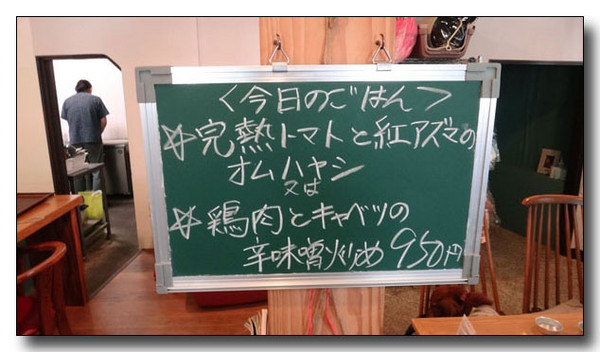 <今日のごはん>
☆完熟トマトと紅アズマの
オムハヤシ
又は
☆鶏肉とキャベツの
辛味噌炒め 950円